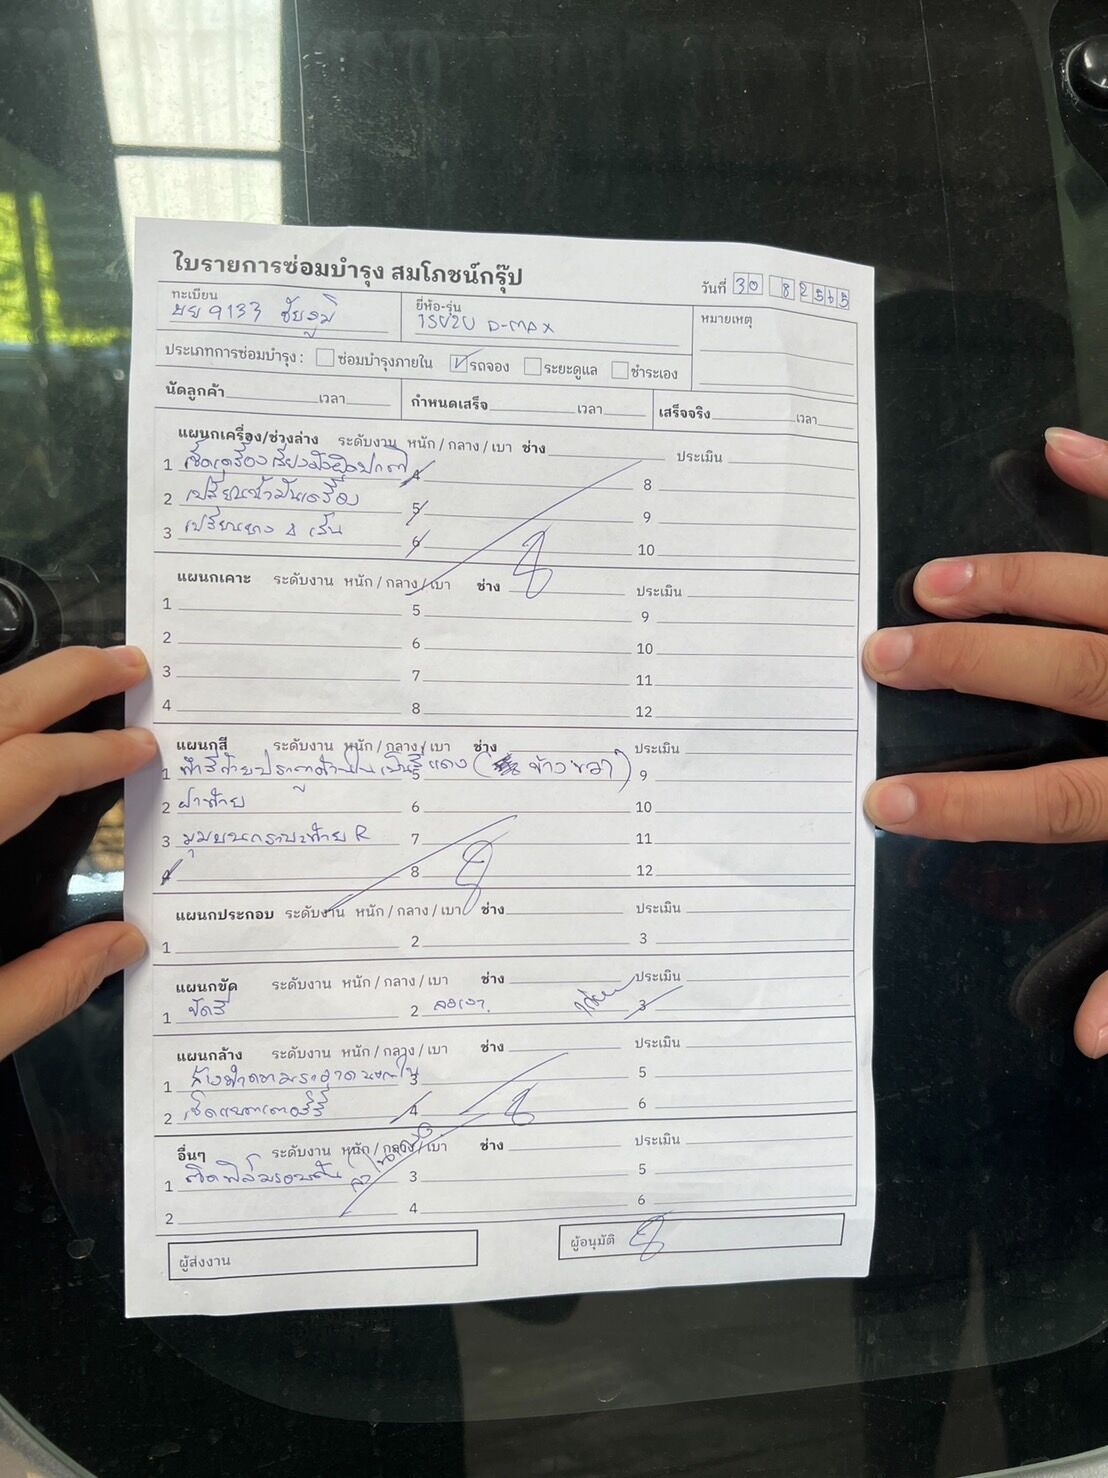 ใบรายการซ่อมบำรุง สมโภชน์กรุ๊ป
วันที่ 30 8 2565
ทะเบียน ยี่ห้อ-รุ่น หมายเหตุ
9133 ชัยภูมิ ISUZU D-MAX
ประเภทการซ่อมบำรุง : ซ่อมบำรุงภายใน รถจอง ระยะดูแล ชำระเอง
นัดลูกค้า เวลา กำหนดเสร็จ เวลา เสร็จจริง เวลา
แผนกเครื่อง/ช่วงล่าง ระดับงาน หนัก / กลาง / เบา ช่าง ประเมิน
1 เช็คเครื่องเสียงดังผิดปกติ 4 8
2 เปลี่ยนน้ำมันเครื่อง 5 9
3 เปลี่ยนยาง 4 เส้น 6 10
แผนกเคาะ ระดับงาน หนัก / กลาง / เบา ช่าง ประเมิน
1 5 9
2 6 10
3 7 11
4 8 12
แผนกสี ระดับงาน หนัก / กลาง / เบา ช่าง ประเมิน
1 ทำสีท้ายประตูด้านในเป็นสีแดง ( ข้างขวา ) 5 9
2 ฝาท้าย 6 10
3 มุมบนกระบะท้าย R 7 11
4 8 12
แผนกประกอบ ระดับงาน หนัก / กลาง / เบา ช่าง ประเมิน
1 2 3
แผนกขัด ระดับงาน หนัก / กลาง / เบา ช่าง ประเมิน
1 ขัดสี 2 ลบเงา 3
แผนกล้าง ระดับงาน หนัก / กลาง / เบา ช่าง ประเมิน
1 ล้างทำความสะอาดนอกใน 3 5
2 เช็คแบตเตอรี่ 4 6
อื่นๆ ระดับงาน หนัก / กลาง / เบา ช่าง ประเมิน
1 ติดฟิล์มรอบคัน 3 5
2 4 6
ผู้ส่งงาน ผู้อนุมัติ